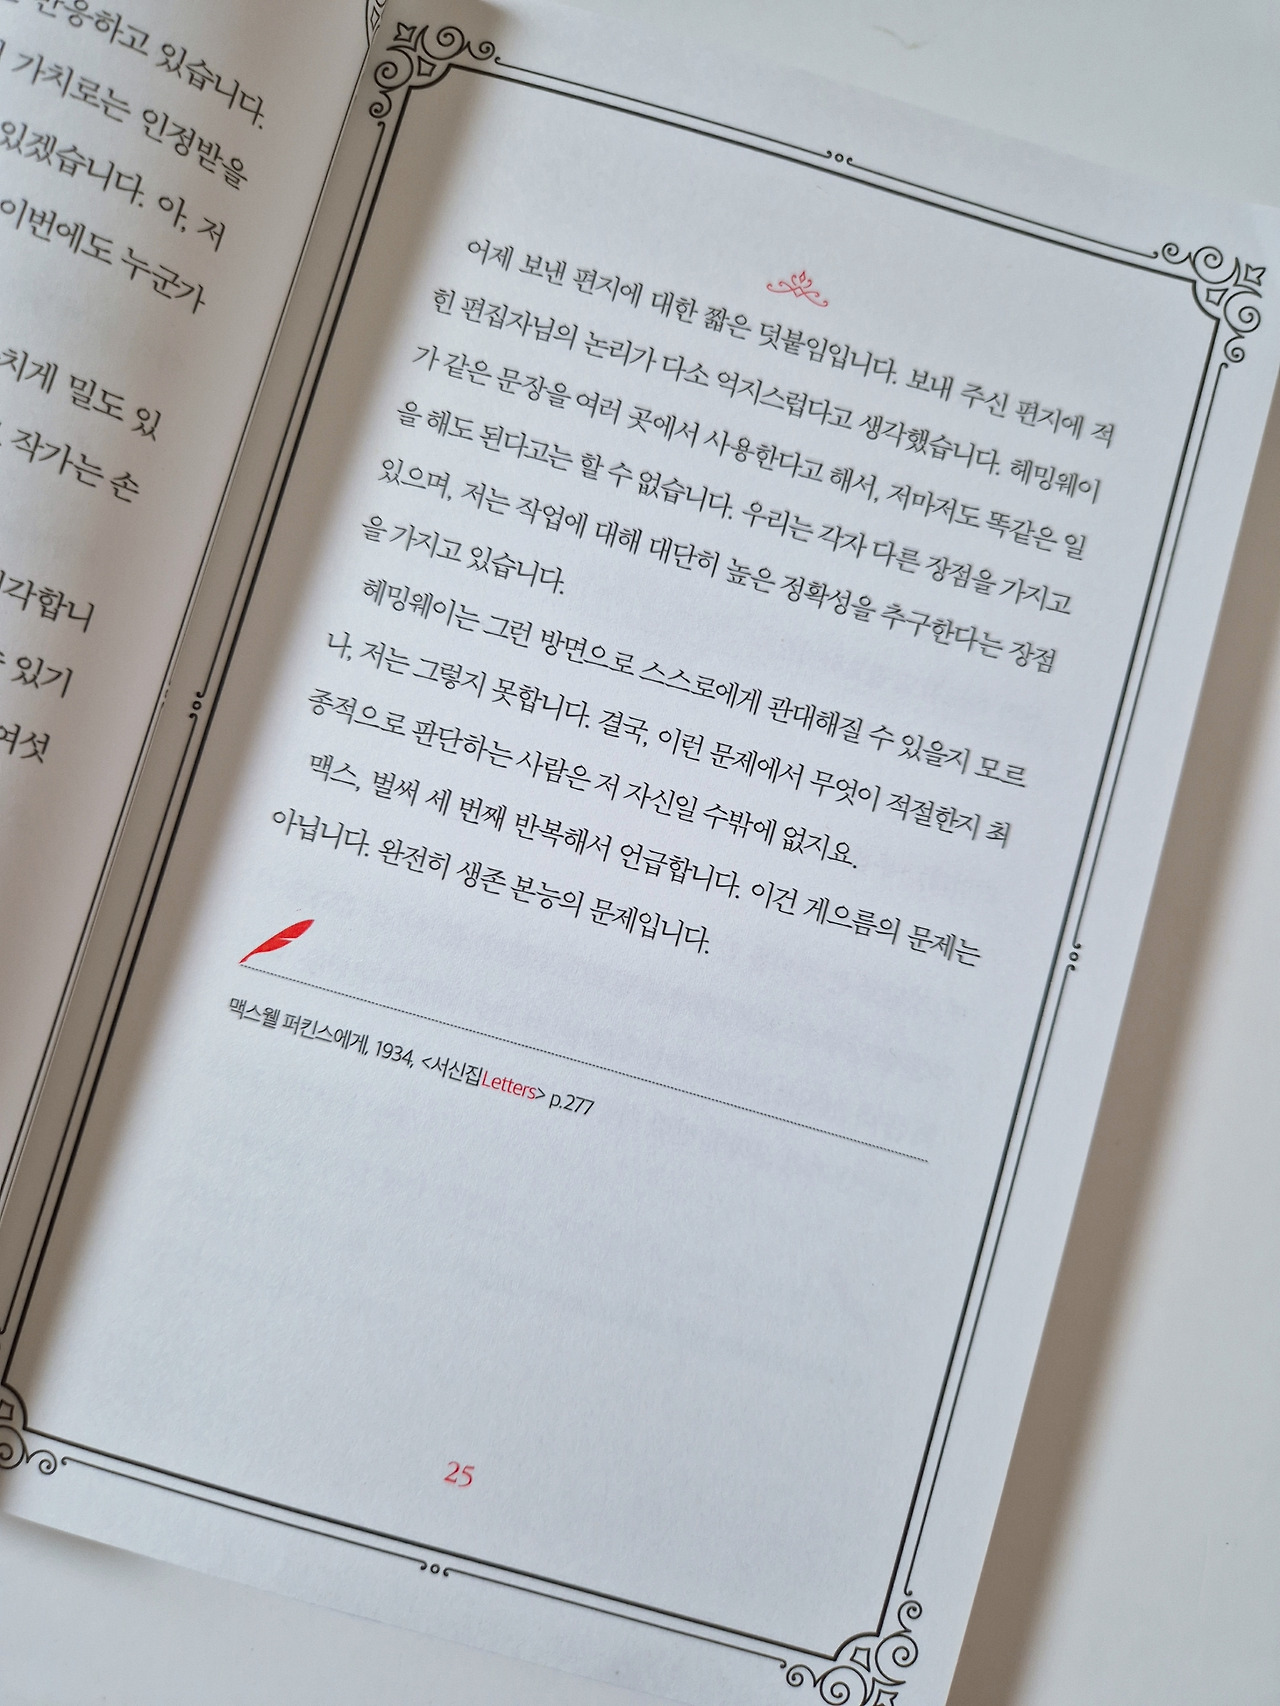 반응하고 있습니다.
가치로는 인정받을
있겠습니다. 아, 저
이번에도 누군가
치게 밀도 있
작가는 손
각합니
있기
여섯
어제 보낸 편지에 대한 짧은 덧붙임입니다. 보내 주신 편지에 적
힌 편집자님의 논리가 다소 억지스럽다고 생각했습니다. 헤밍웨이
가 같은 문장을 여러 곳에서 사용한다고 해서, 저마저도 똑같은 일
을 해도 된다고는 할 수 없습니다. 우리는 각자 다른 장점을 가지고
있으며, 저는 작업에 대해 대단히 높은 정확성을 추구한다는 장점
을 가지고 있습니다.
헤밍웨이는 그런 방면으로 스스로에게 관대해질 수 있을지 모르
나, 저는 그렇지 못합니다. 결국, 이런 문제에서 무엇이 적절한지 최
종적으로 판단하는 사람은 저 자신일 수밖에 없지요.
맥스, 벌써 세 번째 반복해서 언급합니다. 이건 게으름의 문제는
아닙니다. 완전히 생존 본능의 문제입니다.
맥스웰 퍼킨스에게, 1934, <서신집Letters> p.277
25